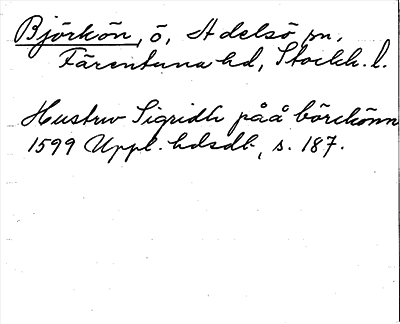 Björkön, ö, Adelsö sn,
Färentuna hd, Stockh. l.
Hustruv Sigridh påå börckönn
1599 Uppl. hdsdb, s. 187.